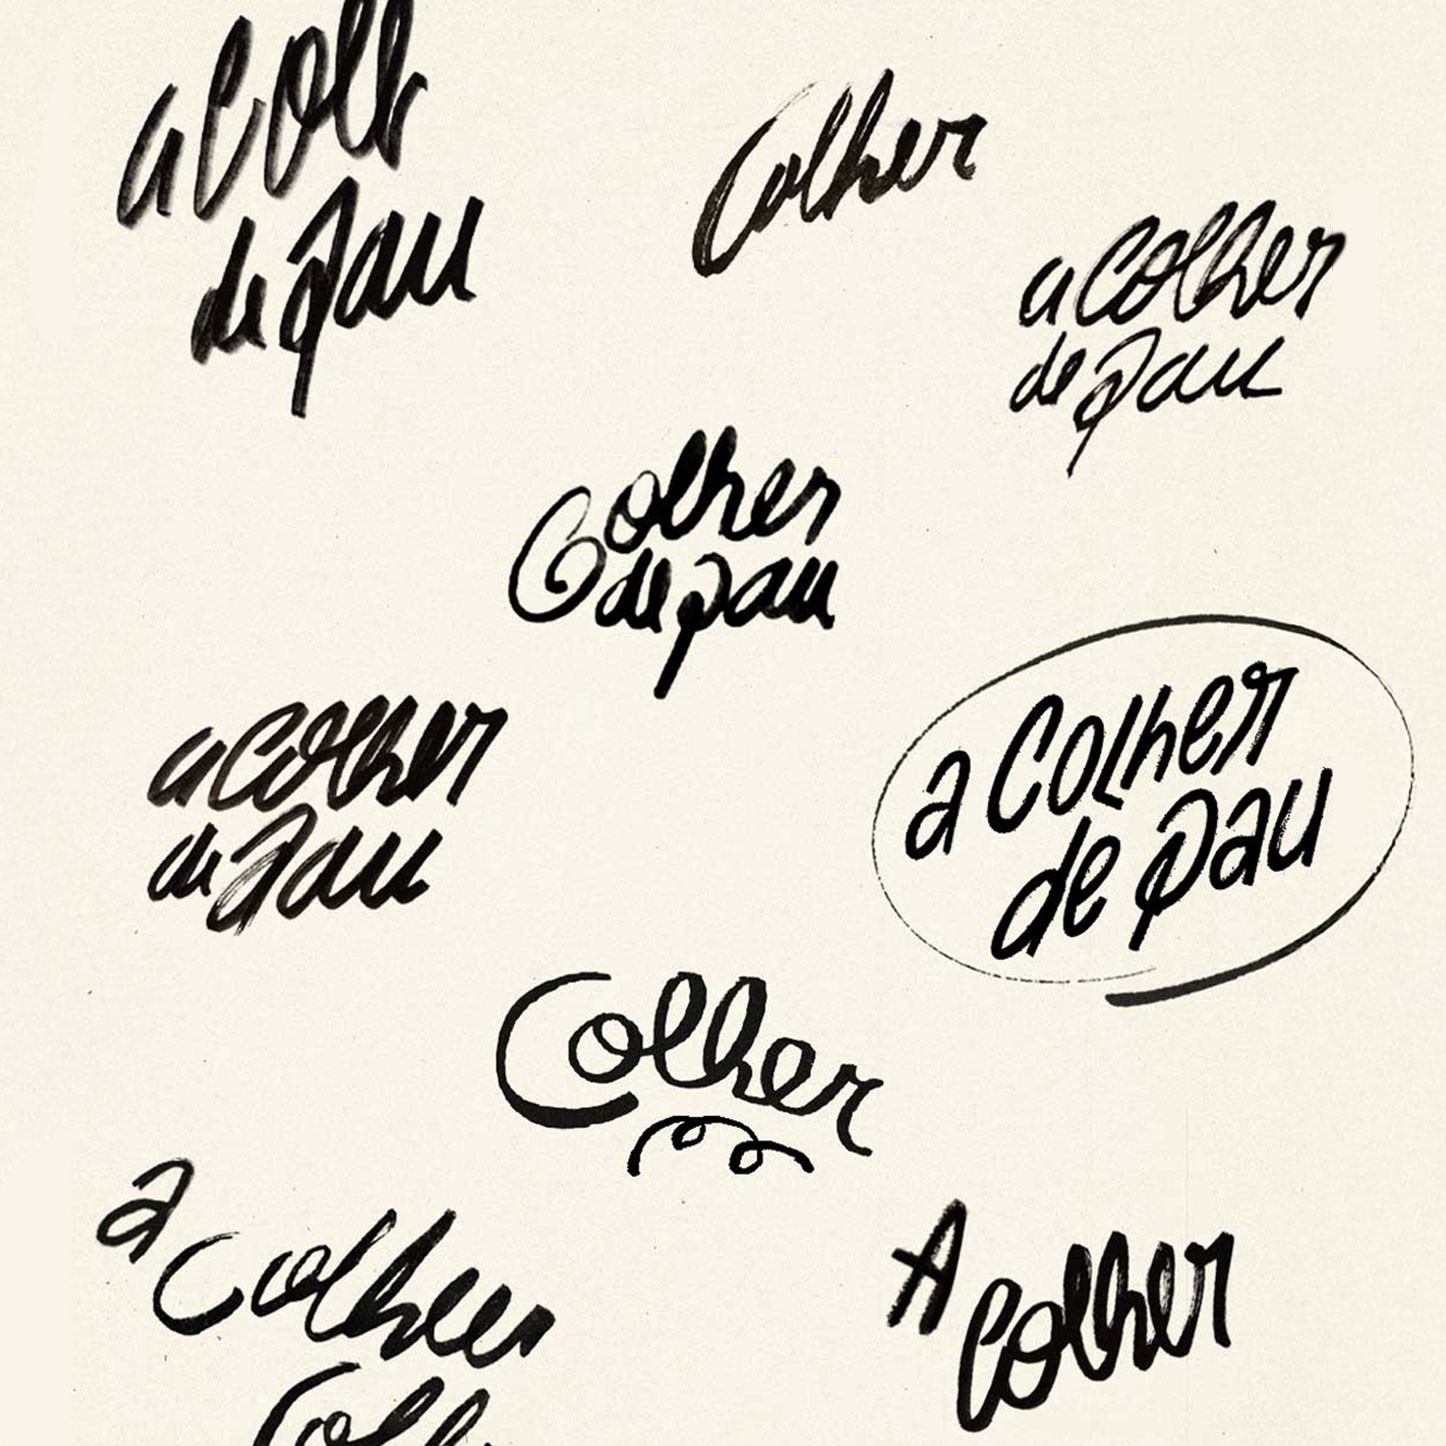 a Colh
de pau
Colher
a Colher
de pau
Colher
de pau
a Colher
de pau
a Colher
de pau
Colher
a Colher
A Colher